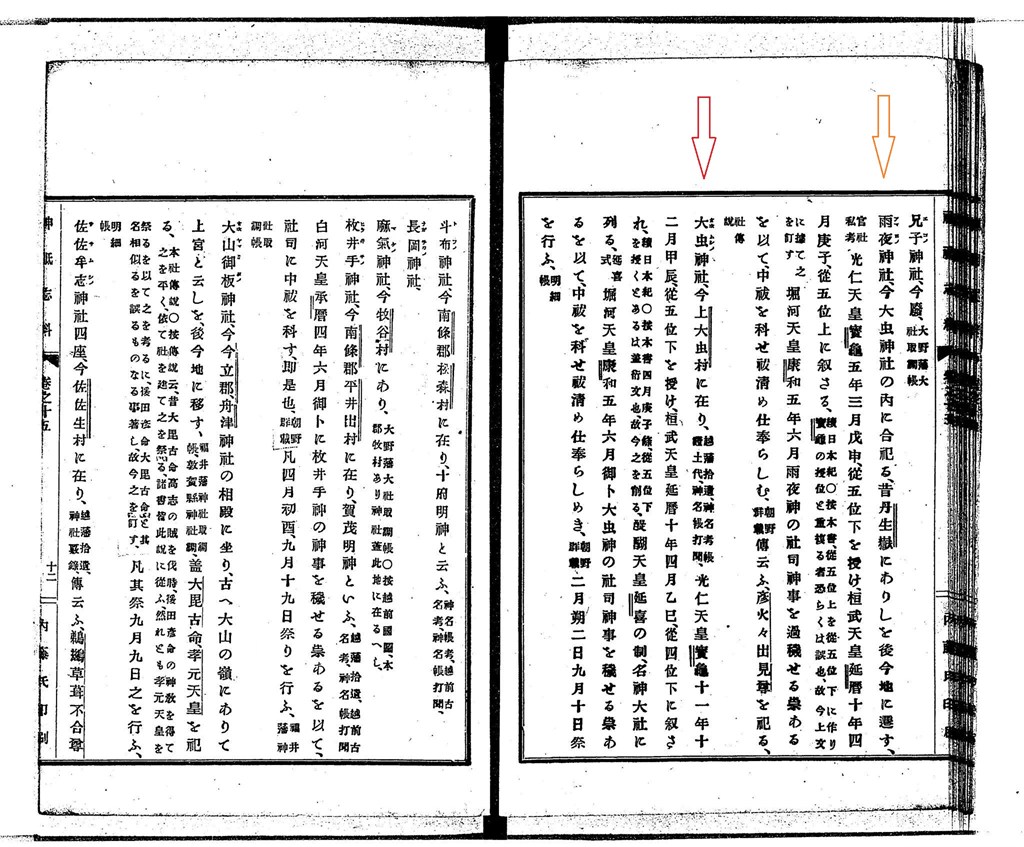 兄子神社、今廢、大野藩大社取調帳
雨夜神社、今大虫神社の內に合祀る、昔丹生嶽にありしを後今地に遷す、
官社私考 光仁天皇寶龜五年三月戊申、從五位下を授け桓武天皇延曆十年四
月庚子、從五位上に叙さる、續日本紀〇按本書、從五位上を從五位下に作り寶龜の授位と重複る者恐らくは誤也、故今上文
に據て之を訂す 堀河天皇康和五年六月雨夜神の社司神事を過穢せる祟ある
を以て中祓を科せ祓清め仕奉らしむ、朝野群載傳云ふ、彥火々出見尊を祀る、
社傳說
大虫神社、今上大虫村に在り、越藩拾遺、神名考、帳證土代、神名帳打聞、光仁天皇寶龜十一年十
二月甲辰、從五位下を授け、桓武天皇延曆十年四月乙巳、從四位下に叙さ
れ、續日本紀〇按本書四月庚子條、從五位下を授くとあるは蓋衍文也、故今之を削る、醍醐天皇延喜の制、名神大社に
列る、延喜式 堀河天皇康和五年六月御卜大虫神の社司神事を穢せる祟あ
るを以て、中祓を科せ祓清め仕奉らしめき、朝野群載二月朔二日九月十日祭
を行ふ、明細帳
斗布神社、今南條郡松森村に在り、十府明神と云ふ、神名帳考、越前古名考、神名帳打聞、
長岡神社、
麻氣神社、今牧谷村にあり、大野藩大社取調帳〇按越前國圖、本郡牧村あり神社蓋此地に在るへし、
枚井手神社、今南條郡平井出村に在り、賀茂明神といふ、越藩拾遺、越前古名考、神名帳打聞
白河天皇承曆四年六月御卜に枚井手神の神事を穢せる祟あるを以て、
社司に中祓を科す、即是也、朝野群載凡四月初酉、九月十九日祭りを行ふ、福井藩神
社取調帳
大山御板神社、今今立郡、舟津神社の相殿に坐り、古へ大山の嶺にありて
上宮と云しを、後今地に移す、福井藩神社取調帳、敦賀縣神社調、蓋大毘古命、孝元天皇を祀
る、本社傳說〇按傳說云、昔大毘古命高志の賊を伐時、猿田彥命の神敎を得て之を平く、依て社を建て之を祭る、諸書皆此說に從ふ、然れとも孝元天皇を
祭るを以て之を考るに、猿田彥命大毘古命と其名相似るを誤るものなる事著し、故今之を訂す、凡其祭九月九日之を行ふ、
明細帳
佐佐牟志神社四座、今佐佐生村に在り、越藩拾遺、神社纂錄、傳云ふ、鵜鷀草葺不合尊
神祇志料
卷之十五
十二
內藤氏印刷